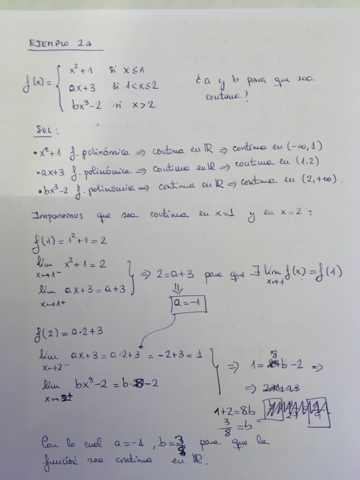 EJEMPLO 2a
f(x) = { x²+1 si x≤1
ax+3 si 1<x≤2
bx³-2 si x>2
¿a y b para que sea
continua?
SOL:
• x²+1 f. polinómica ⇒ continua en ℝ ⇒ continua en (-∞,1)
• ax+3 f. polinómica ⇒ continua en ℝ ⇒ continua en (1,2)
• bx³-2 f. polinómica ⇒ continua en ℝ ⇒ continua en (2,+∞).
Imponemos que sea continua en x=1 y en x=2:
f(1) = 1²+1 = 2
lim x→1⁻ x²+1 = 2
lim x→1⁺ ax+3 = a+3
} ⇒ 2=a+3 para que ∃ lim x→1 f(x) = f(1)
⇓
a=-1
f(2) = a·2+3
lim x→2⁻ ax+3 = a·2+3 = -2+3 = 1
lim x→2⁺ bx³-2 = b·8-2
} ⇒ 1=8b-2 ⇒
⇒
1+2=8b
3/8=b
Con lo cual a=-1, b=3/8 para que la
función sea continua en ℝ.